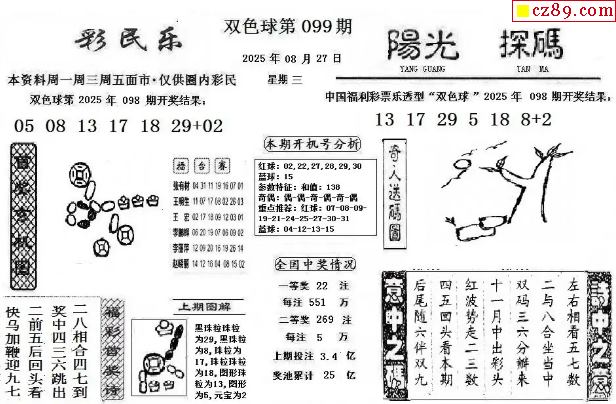 cz89.com
彩民乐
双色球第 099 期
2025 年 08 月 27 日
星期三
陽光 探碼
YANG GUANG TAN MA
本资料周一周三周五面市·仅供圈内彩民
双色球第 2025 年 098 期开奖结果:
05 08 13 17 18 29+02
中国福利彩票乐透型“双色球”2025 年 098 期开奖结果:
13 17 29 5 18 8+2
首奖玄机图
擂台赛
王宏 02 17 18 09 12 03 01
本期开机号分析
红球: 02,22,27,28,29,30
蓝球: 15
参数特征: 和值: 138
奇偶: 偶-偶-奇-偶-奇-偶
重点推荐: 红球: 07-08-09-
19-21-24-25-27-30-31
蓝球: 04-12-13-15
奇人送碼圖
全国中奖情况
一等奖 22 注
每注 551 万
二等奖 269 注
每注 5 万
上期投注 3.4 亿
奖池累计 25 亿
二八相合四七到
奖中四三六跳出
二前五后回头看
快马加鞭迎九七
福彩首奖诗
上期图解
黑珠拉珠粒
为29,黑珠粒
为8,珠粒为
17,珠粒珠粒
为18,图形珠
粒为13,图形
为5,元宝为2
意中之推
左右相看五七数
二与八合坐当中
双码三六分辨来
十一月中出彩头
红波势走二三数
四五回头看本期
后尾随六伴双九
詩中之意